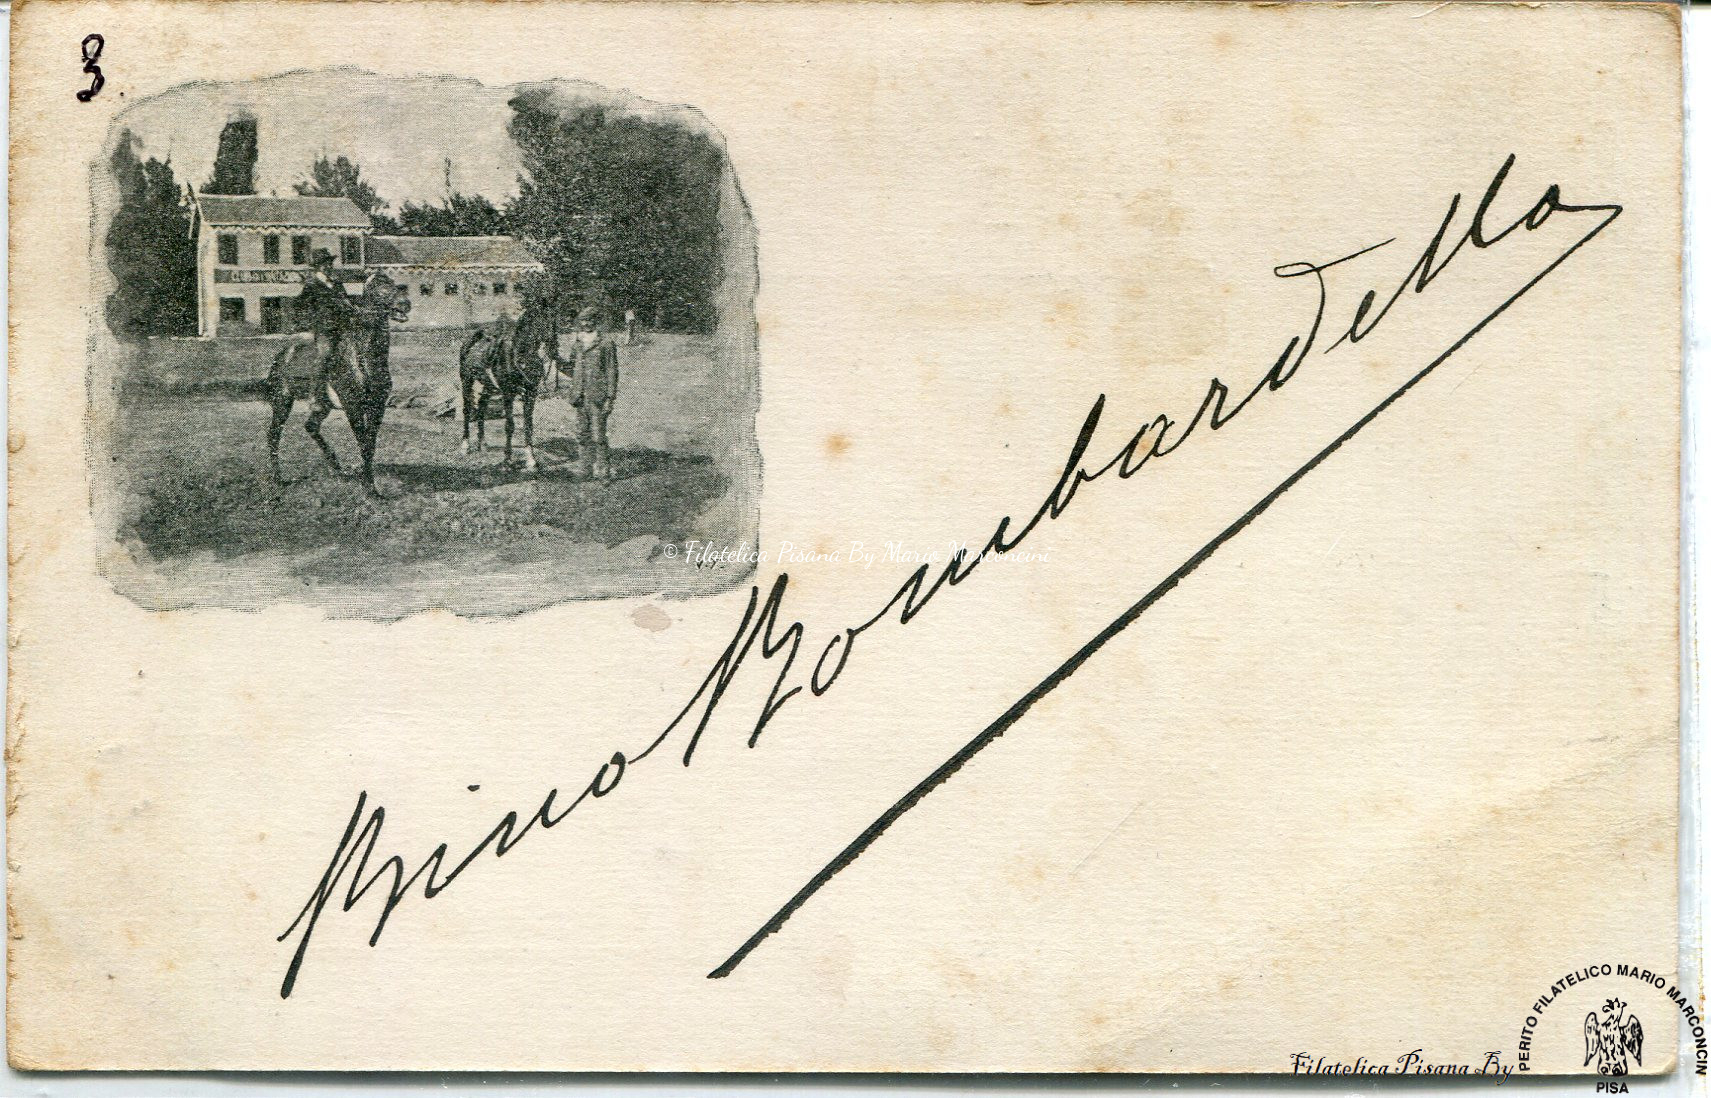 3
© Filatelica Pisana By Mario Marconcini
Bombardella
Filatelica Pisana By
PERITO FILATELICO MARIO MARCONCIN
PISA